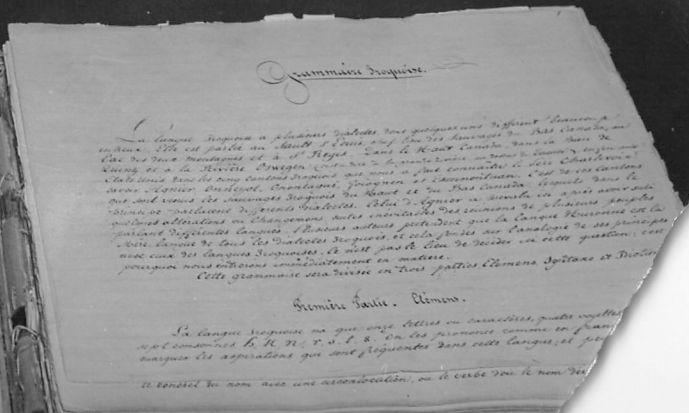 Grammaire Iroquoise.
La langue iroquoise a plusieurs dialectes, dont quelques uns différent beaucoup
entr'eux. Elle est parlée au Sault St Louis, au Lac des Sauvages du Bas Canada, au
Lac des deux montagnes et à St Régis. Dans le Haut Canada, dans la Baie de
et à la Rivière
Etats unis dans les cinq cantons Iroquois que nous a fait connaître le Père Charlevoix;
savoir Agnier, Onneyout, Onontagué, Goiogoen et Tsonnontouan. C'est de ces cantons
que sont venus les sauvages Iroquois du Haut et du Bas Canada, lesquels dans le
parlaient différents dialectes. Celui d'Agnier a prévalu après avoir subi
quelques altérations ou changemens, suites inévitables des réunions de plusieurs peuples
parlant différentes langues. Plusieurs auteurs prétendent que la langue Huronne est la
Mère langue de tous les dialectes Iroquois, et cela fondés sur l'analogie de ses principes
avec ceux des langues Iroquoises. Ce n'est pas le lieu de décider cette question; c'est
pourquoi nous entrerons immédiatement en matière.
Cette grammaire sera divisée en trois parties Elémens Syntaxe et
Première Partie. Elémens.
La langue Iroquoise n'a que onze lettres ou caractères, quatre voyelles
sept consonnes h, k, n, r, s, t, 8. On les prononce comme en fran
marquer les aspirations qui sont fréquentes dans cette langue; et
le génitif du nom avec une circonlocution, ou le verbe dont le nom